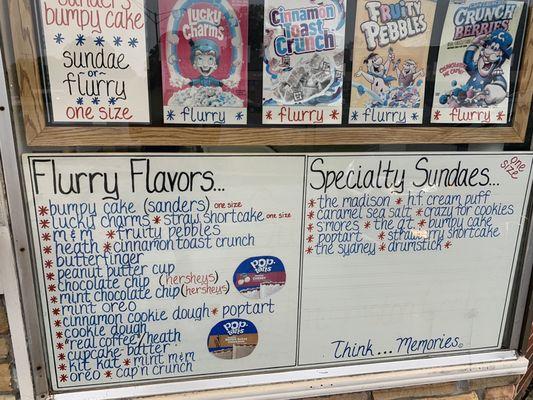 Sanders
bumpy cake
sundae
or
flurry
one size
Lucky
Charms
flurry
Cinnamon
Toast
Crunch
flurry
FRUITY
PEBBLES
flurry
CRUNCH
BERRIES
flurry
Flurry Flavors...
* bumpy cake (sanders) one size
* lucky charms * straw. shortcake * one size
* m & m * fruity pebbles
* heath * cinnamon toast crunch
* butterfinger
* peanut butter cup
* chocolate chip (hersheys)
* mint chocolate chip (hersheys)
* mint oreo
* cinnamon cookie dough * poptart
* cookie dough
* real coffee/heath
* cupcake-batter
* kit kat * mint m&m
* oreo * cap'n crunch
POP.
tarts
POP.
tarts
Specialty Sundaes...
one
size
* the madison * h.f. cream puff
* caramel sea salt * crazy for cookies
* s'mores * the oz * bumpy cake
* poptart * strawberry shortcake
* the sydney * drumstick *
Think... Memories.